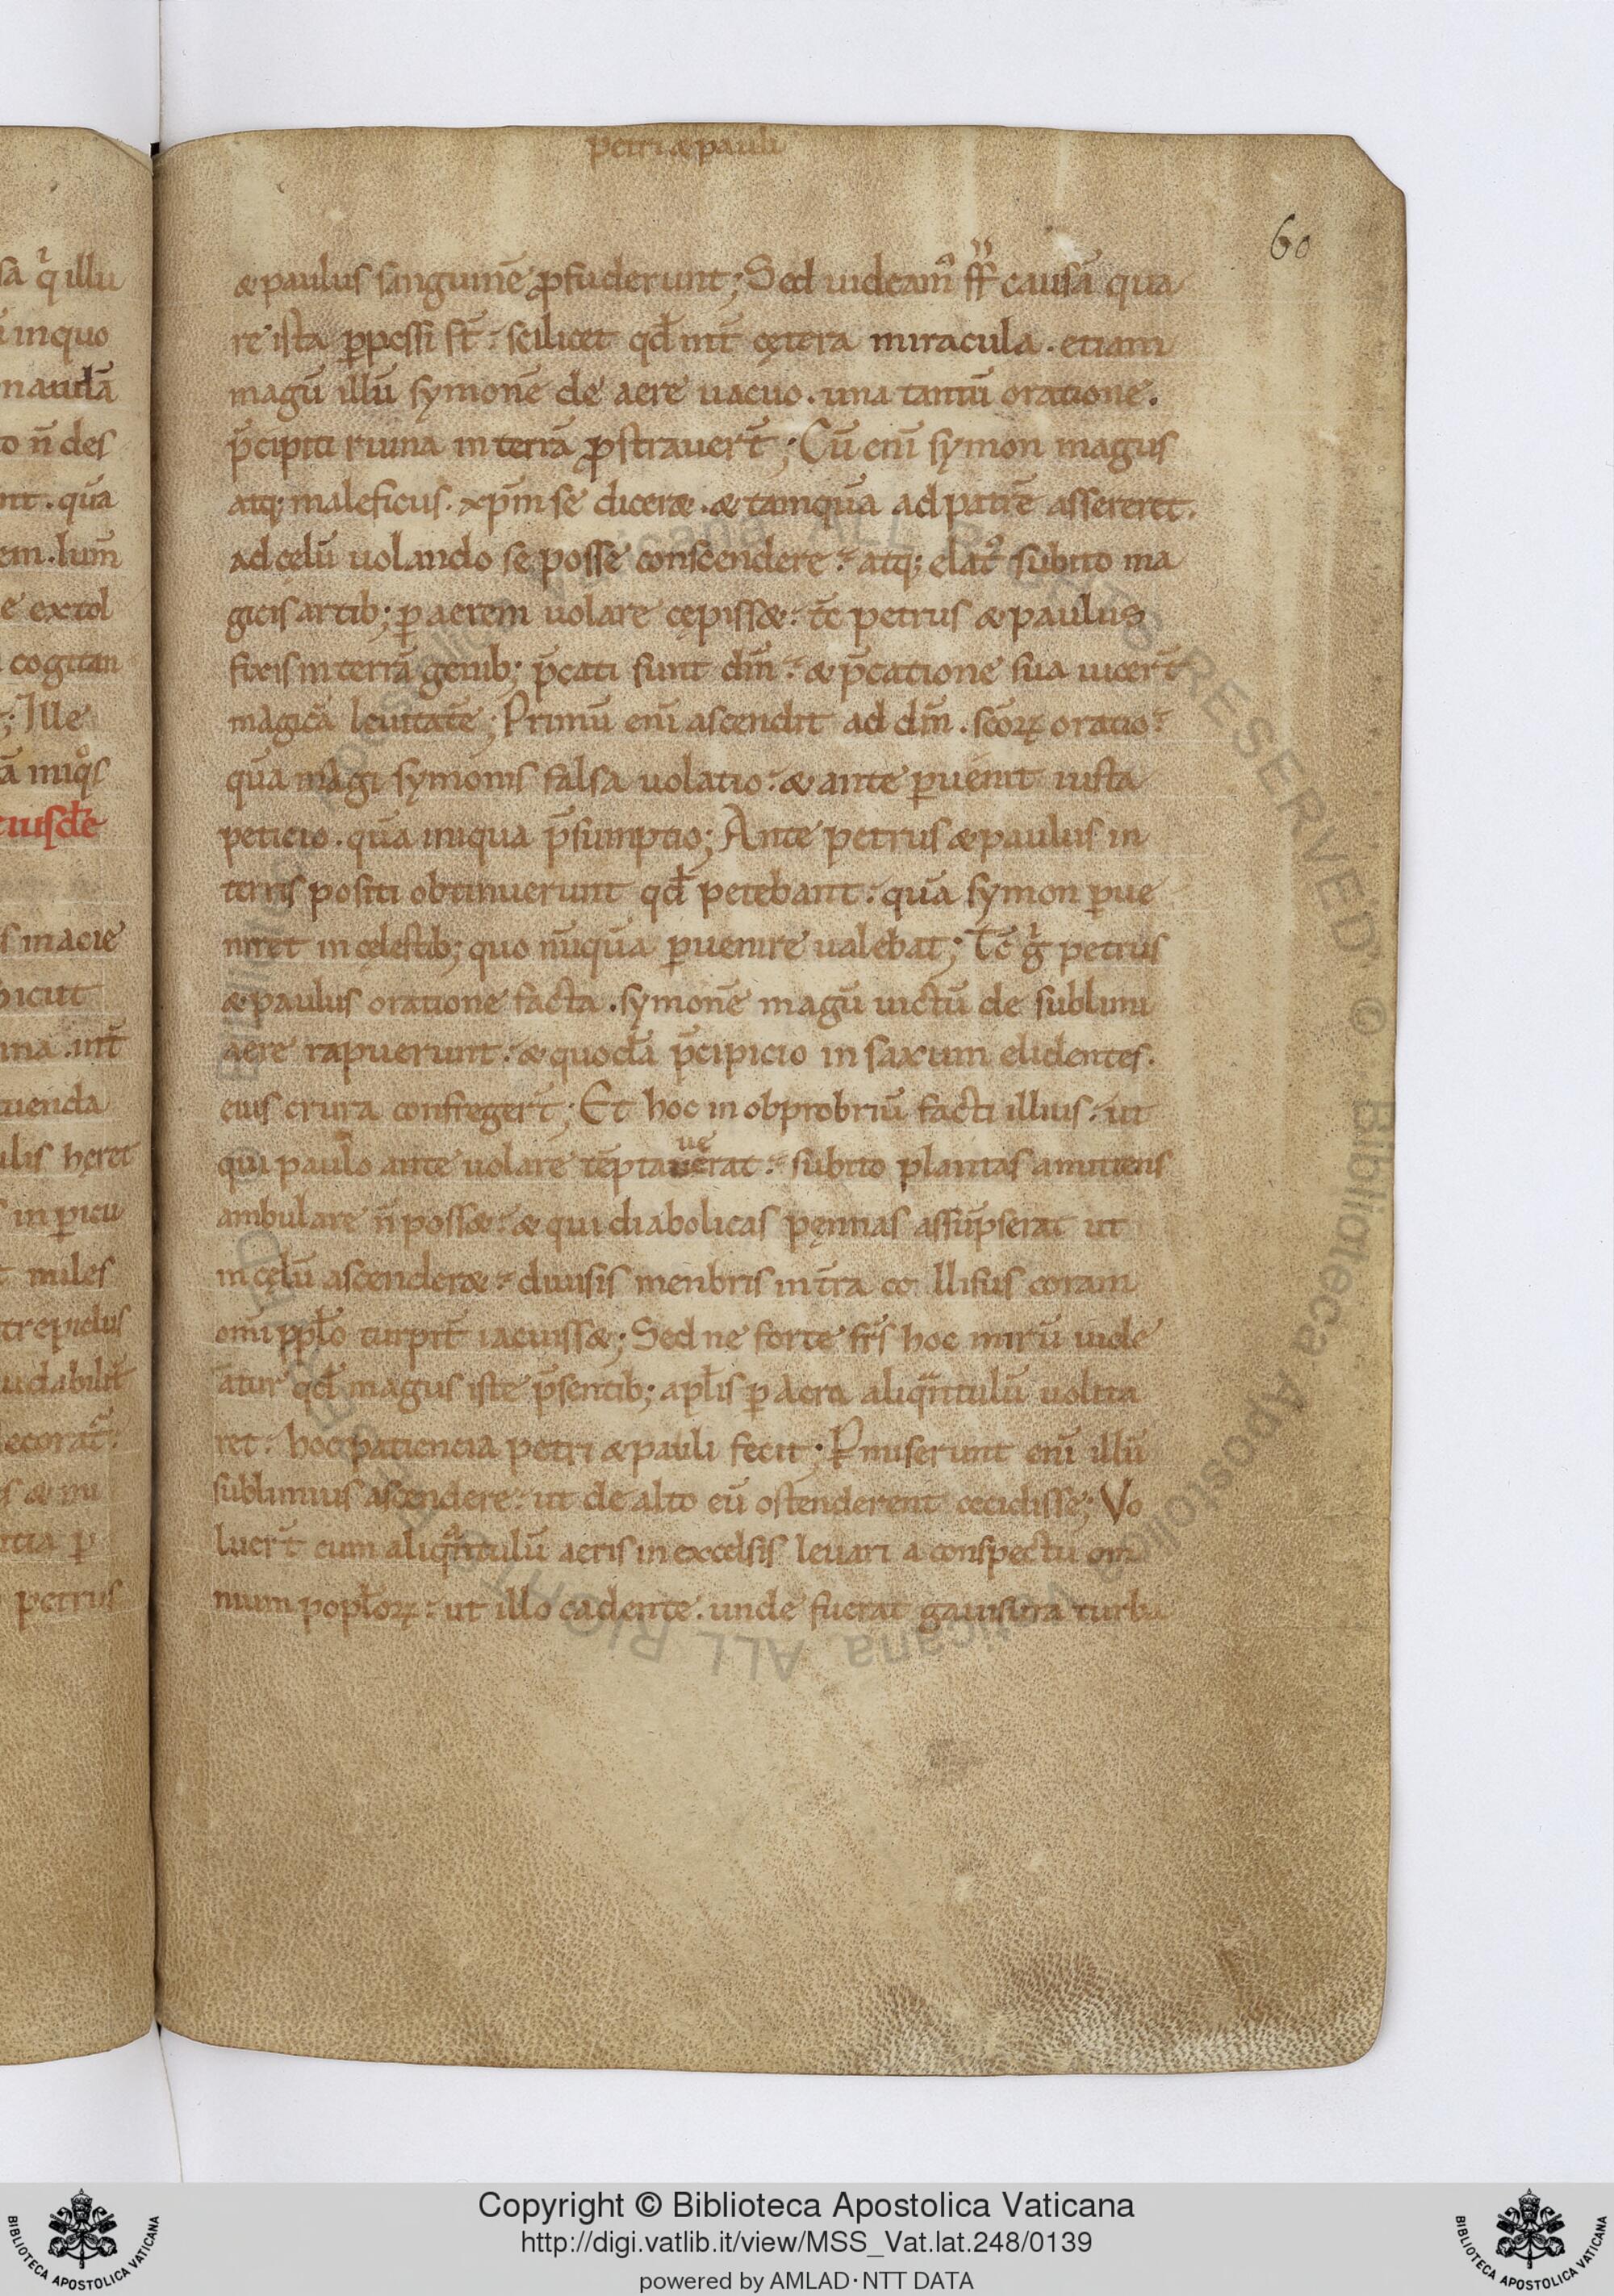 petri & pauli
60
& paulus sanguinē ꝓfuderunt; Sed uideam᷒ ff̄ causā qua
re ista ꝑpessi st̄ : scilicet qđ int̄ cętera miracula . etiam
magū illū symonē de aere uacuo . una tantū oratione .
p̄cipiti ruina in terrā ꝓstrauer̄t ; Cū enī symon magus
atq; maleficus . xp̄m se dicer& . & tamquā ad patrē assereret .
ad celū uolando se posse conscendere : atq; elat᷒ subito ma
gicis artib; ꝑ aerem uolare cępiss& : tc̄ petrus & paulus
fixis in terrā genib; p̄cati sunt dm̄ : & p̄catione sua uicer̄t
magicā leuitatē ; Primū enī ascendit ad dm̄ . sc̄oꝝ oratio :
quā magi symonis falsa uolatio : & ante ꝑuenit iusta
peticio . quā iniqua p̄sumptio ; Ante petrus & paulus in
terris positi obtinuerunt qđ petebant : quā symon ꝑue
niret in cęlestib; quo nūquā ꝑuenire ualebat ; Tc̄ gͥ petrus
& paulus oratione facta . symonē magū uictū de sublimi
aere rapuerunt : & quodā p̄cipicio in saxum elidentes .
eius crura confreger̄t ; Et hoc in obprobriū facti illius : ut
ue
qui paulo ante uolare tēptauerat : subito plantas amittens
ambulare n̄ poss& : & qui diabolicas pęnnas assūpserat ut
in cęlū ascender& : diuisis menbris in t̄ra co llisus coram
omī pplo turpit̄ iacuiss& ; Sed ne forte frs̄ hoc mirū uide
atur qđ magus iste p̄sentib; aplis ꝑ aera aliqͣntulū uolita
ret : hoc patiencia petri & pauli fecit ; Pmiserunt enī illū
sublimius ascendere : ut de alto eū ostenderent cecidisse ; Vo
luer̄t eum aliqͣntulū aeris in excelsis leuari a conspectu om
nium poploꝝ : ut illo cadente . unde fuerat gauisura turba
sā qͥ illu
inquo
o n̄ des
nt . quā
em . lum̄
e extol
cogitan
; Ille
ā iniqͦs
eiusdē
s in acie
picut
ina . int̄
tuenda
ulis hęret
in ꝑicu
t miles
trepidus
udabilit̄
tia ꝑ
petrus
© Biblioteca Apostolica Vaticana ALL RIGHTS RESERVED
Copyright © Biblioteca Apostolica Vaticana
http://digi.vatlib.it/view/MSS_Vat.lat.248/0139
powered by AMLAD·NTT DATA
BIBLIOTECA APOSTOLICA VATICANA
BIBLIOTECA APOSTOLICA VATICANA